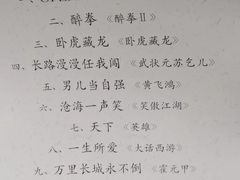 二、醉拳《醉拳Ⅱ》
三、卧虎藏龙《卧虎藏龙》
四、长路漫漫任我闯《武状元苏乞儿》
五、男儿当自强《黄飞鸿》
六、沧海一声笑《笑傲江湖》
七、天下《英雄》
八、一生所爱《大话西游》
九、万里长城永不倒《霍元甲》